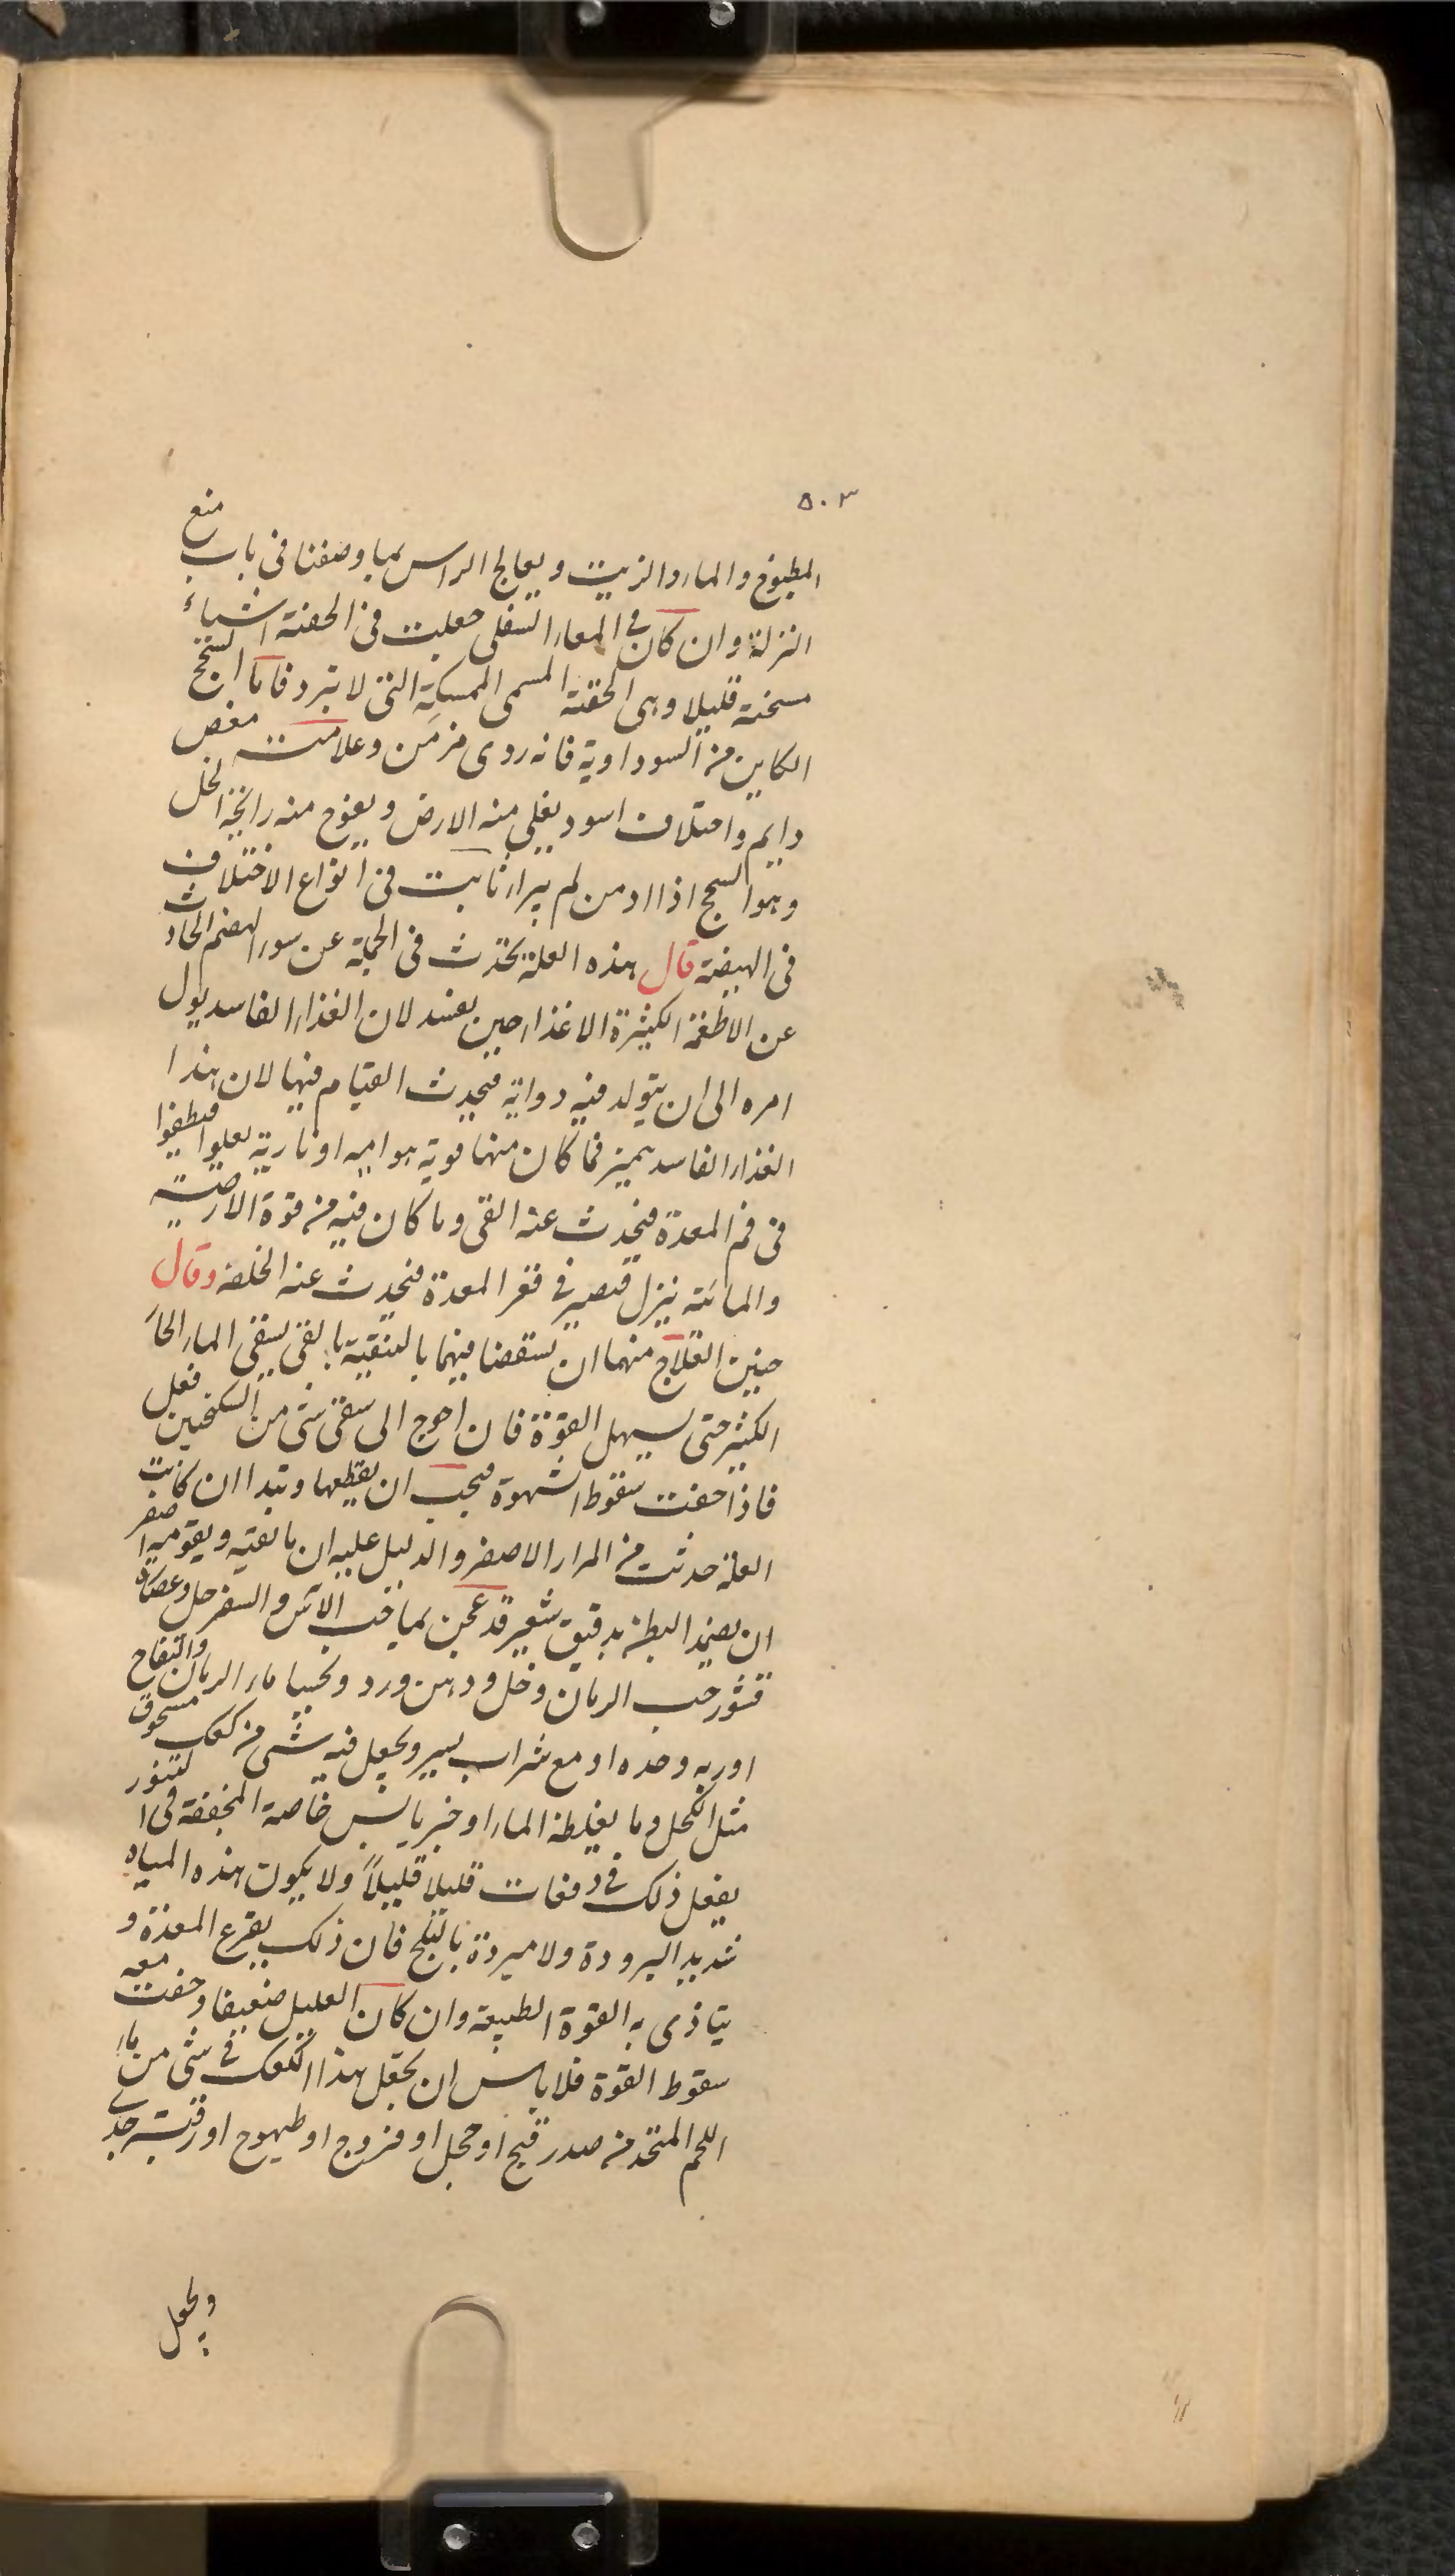 ٥٠٣
المطبوخ والماء والزيت ويعالج الراس بما وصفنا في باب منع
النزلة وان كان في المعاء السفلى جعلت في الحقنة اشياء
مسخنة قليلا وهى الحقنة المسمى الممسكة التى لا تبرد فاما السحج
الكاين من السوداوية فانه ردى مزمن وعلامته مغص
دايم واختلاف اسود يغلى منه الارض ويفوح منه رائحة الخل
وهو السحج اذا ادمن لم يبرا ثابت في انواع الاختلاف
في الهيضة قال هذه العلة تحدث في الجملة عن سوء الهضم الحادث
عن الاطعمة الكثيرة الاغذاء حين يفسد لان الغذاء الفاسد يول
امره الى ان يتولد فيه دواية فيحدث القيام فيها لان هذا
الغذاء الفاسد يميز فما كان منها قوية هوايية او نارية يعلوا فيطفوا
في فم المعدة فيحدث عنه القى وما كان فيه من قوة الارضية
والمائية ينزل فيصير في قعر المعدة فيحدث عنه الخلفة وقال
حنين العلاج منهما ان تستقصا فيهما بالتنقية بالقى يسقى الماء الحار
الكثير حتى يسهل القوة فان احوج الى سقى شى من السكنجبين فعل
فاذا خفت سقوط الشهوة فيجب ان يقطعها وتبدا ان كانت
العلة حدثت من المرار الاصفر والدليل عليه ان ما تقيه ويقومه اصفر
ان يضمد البطن بدقيق شعير قد عجن بماء حب الآس والسفرجل وعصارة
قشور حب الرمان وخل ودهن ورد وتحسيا ماء الرمان والتفاح
اوربه وحده او مع شراب يسير ويجعل فيه شى من كعك مسحوق
مثل الكحل وما يغلظه الماء او خبز يابس خاصة المجففة في التنور
يفعل ذلك في دفعات قليلا قليلاً ولا يكون هذه المياه
شديد البرودة ولا مبردة بالثلج فان ذلك يقرع المعدة و
يتاذى به القوة الطبيعة وان كان العليل ضعيفا وخفت معه
سقوط القوة فلا باس ان يجعل هذا الكعك في شى من ماء
اللحم المتخذ من صدر قبج او حجل او فروج او طيهوج او رقبة جدى
ويجعل